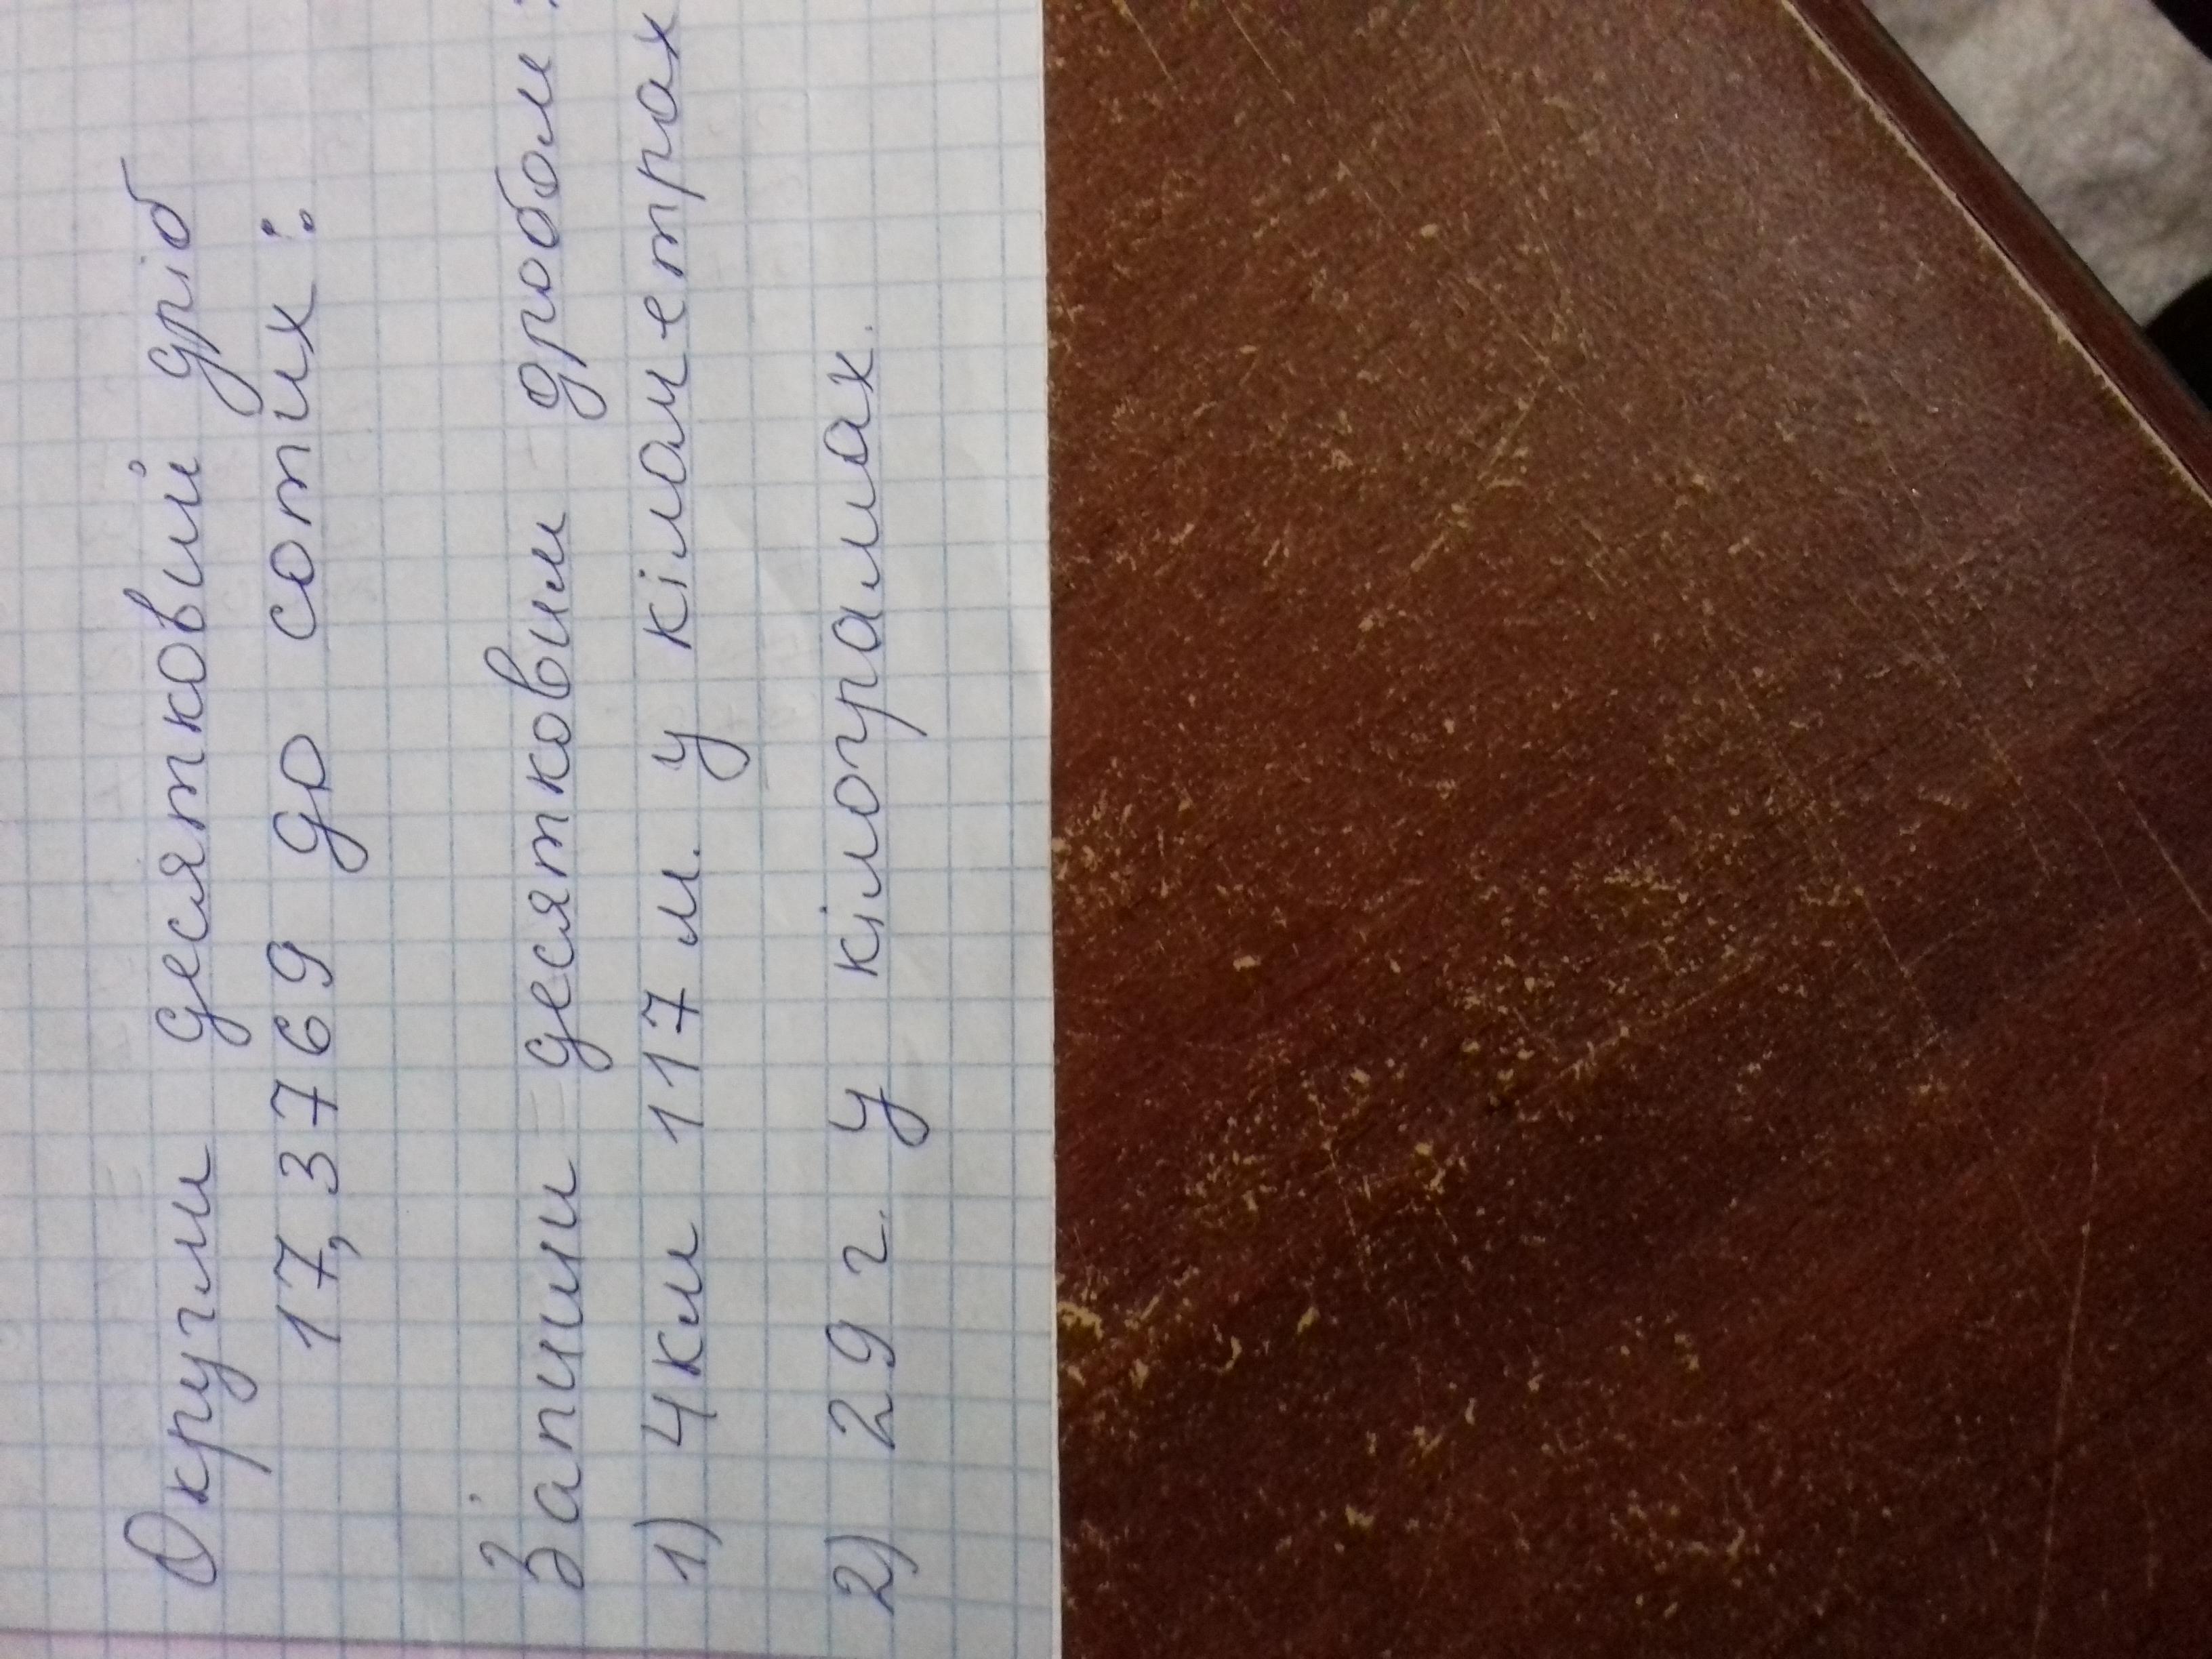 Округли десятковий дріб
17,3769 до сотих:
Запиши десятковим дробом:
1) 4км 117м. у кілометрах
2) 29 г. у кілограмах.